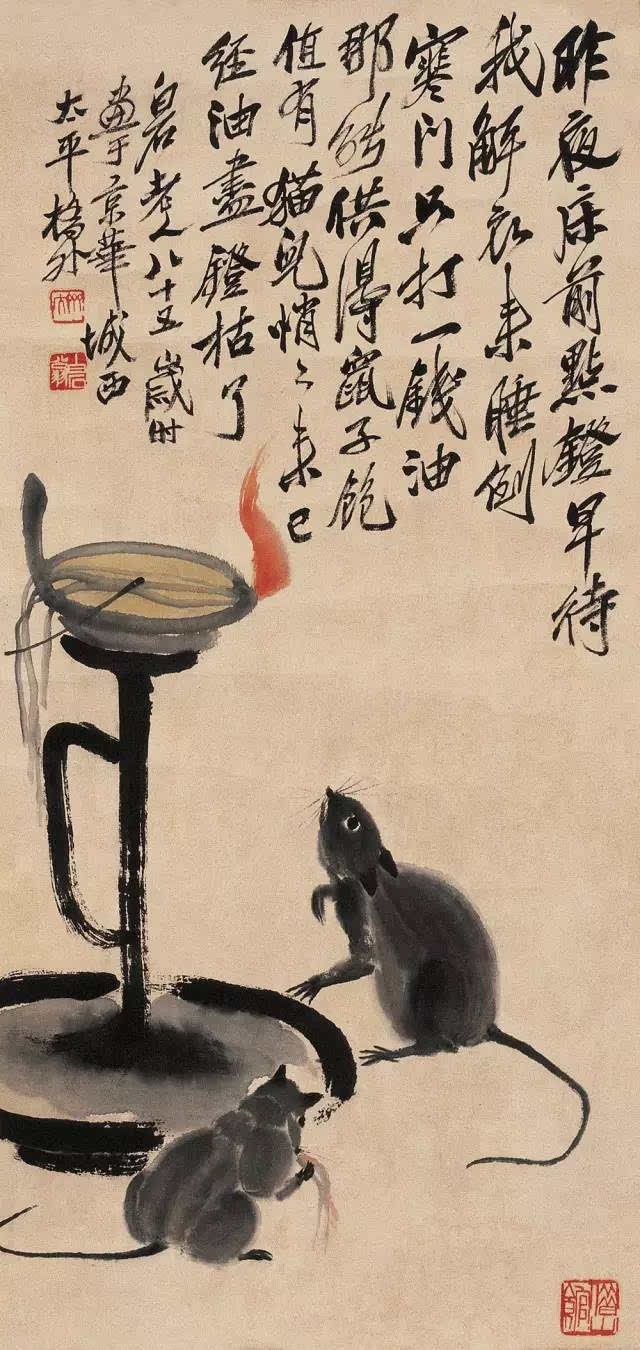 昨夜床前點鐙早待
我解衣来睡倒
寒门只打一錢油
那能供得鼠子飽
值有猫兒悄々来已
經油盡鐙枯了
白石老人八十五歲时
畫于京華城西
太平橋外